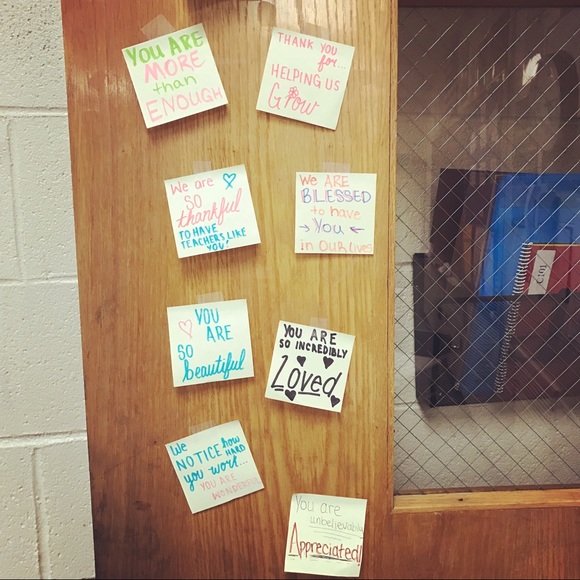 YOU ARE
MORE
than
ENOUGH
THANK YOU
for...
HELPING US
Grow
We are
SO
thankful
TO HAVE
TEACHERS LIKE
YOU!
We ARE
BLESSED
to have
You
in OUR lives
YOU
ARE
SO
beautiful
YOU ARE
SO INCREDIBLY
Loved
We
NOTICE how
HARD
you work...
YOU ARE
WONDERFUL
You are
unbelievably
Appreciated!
1st